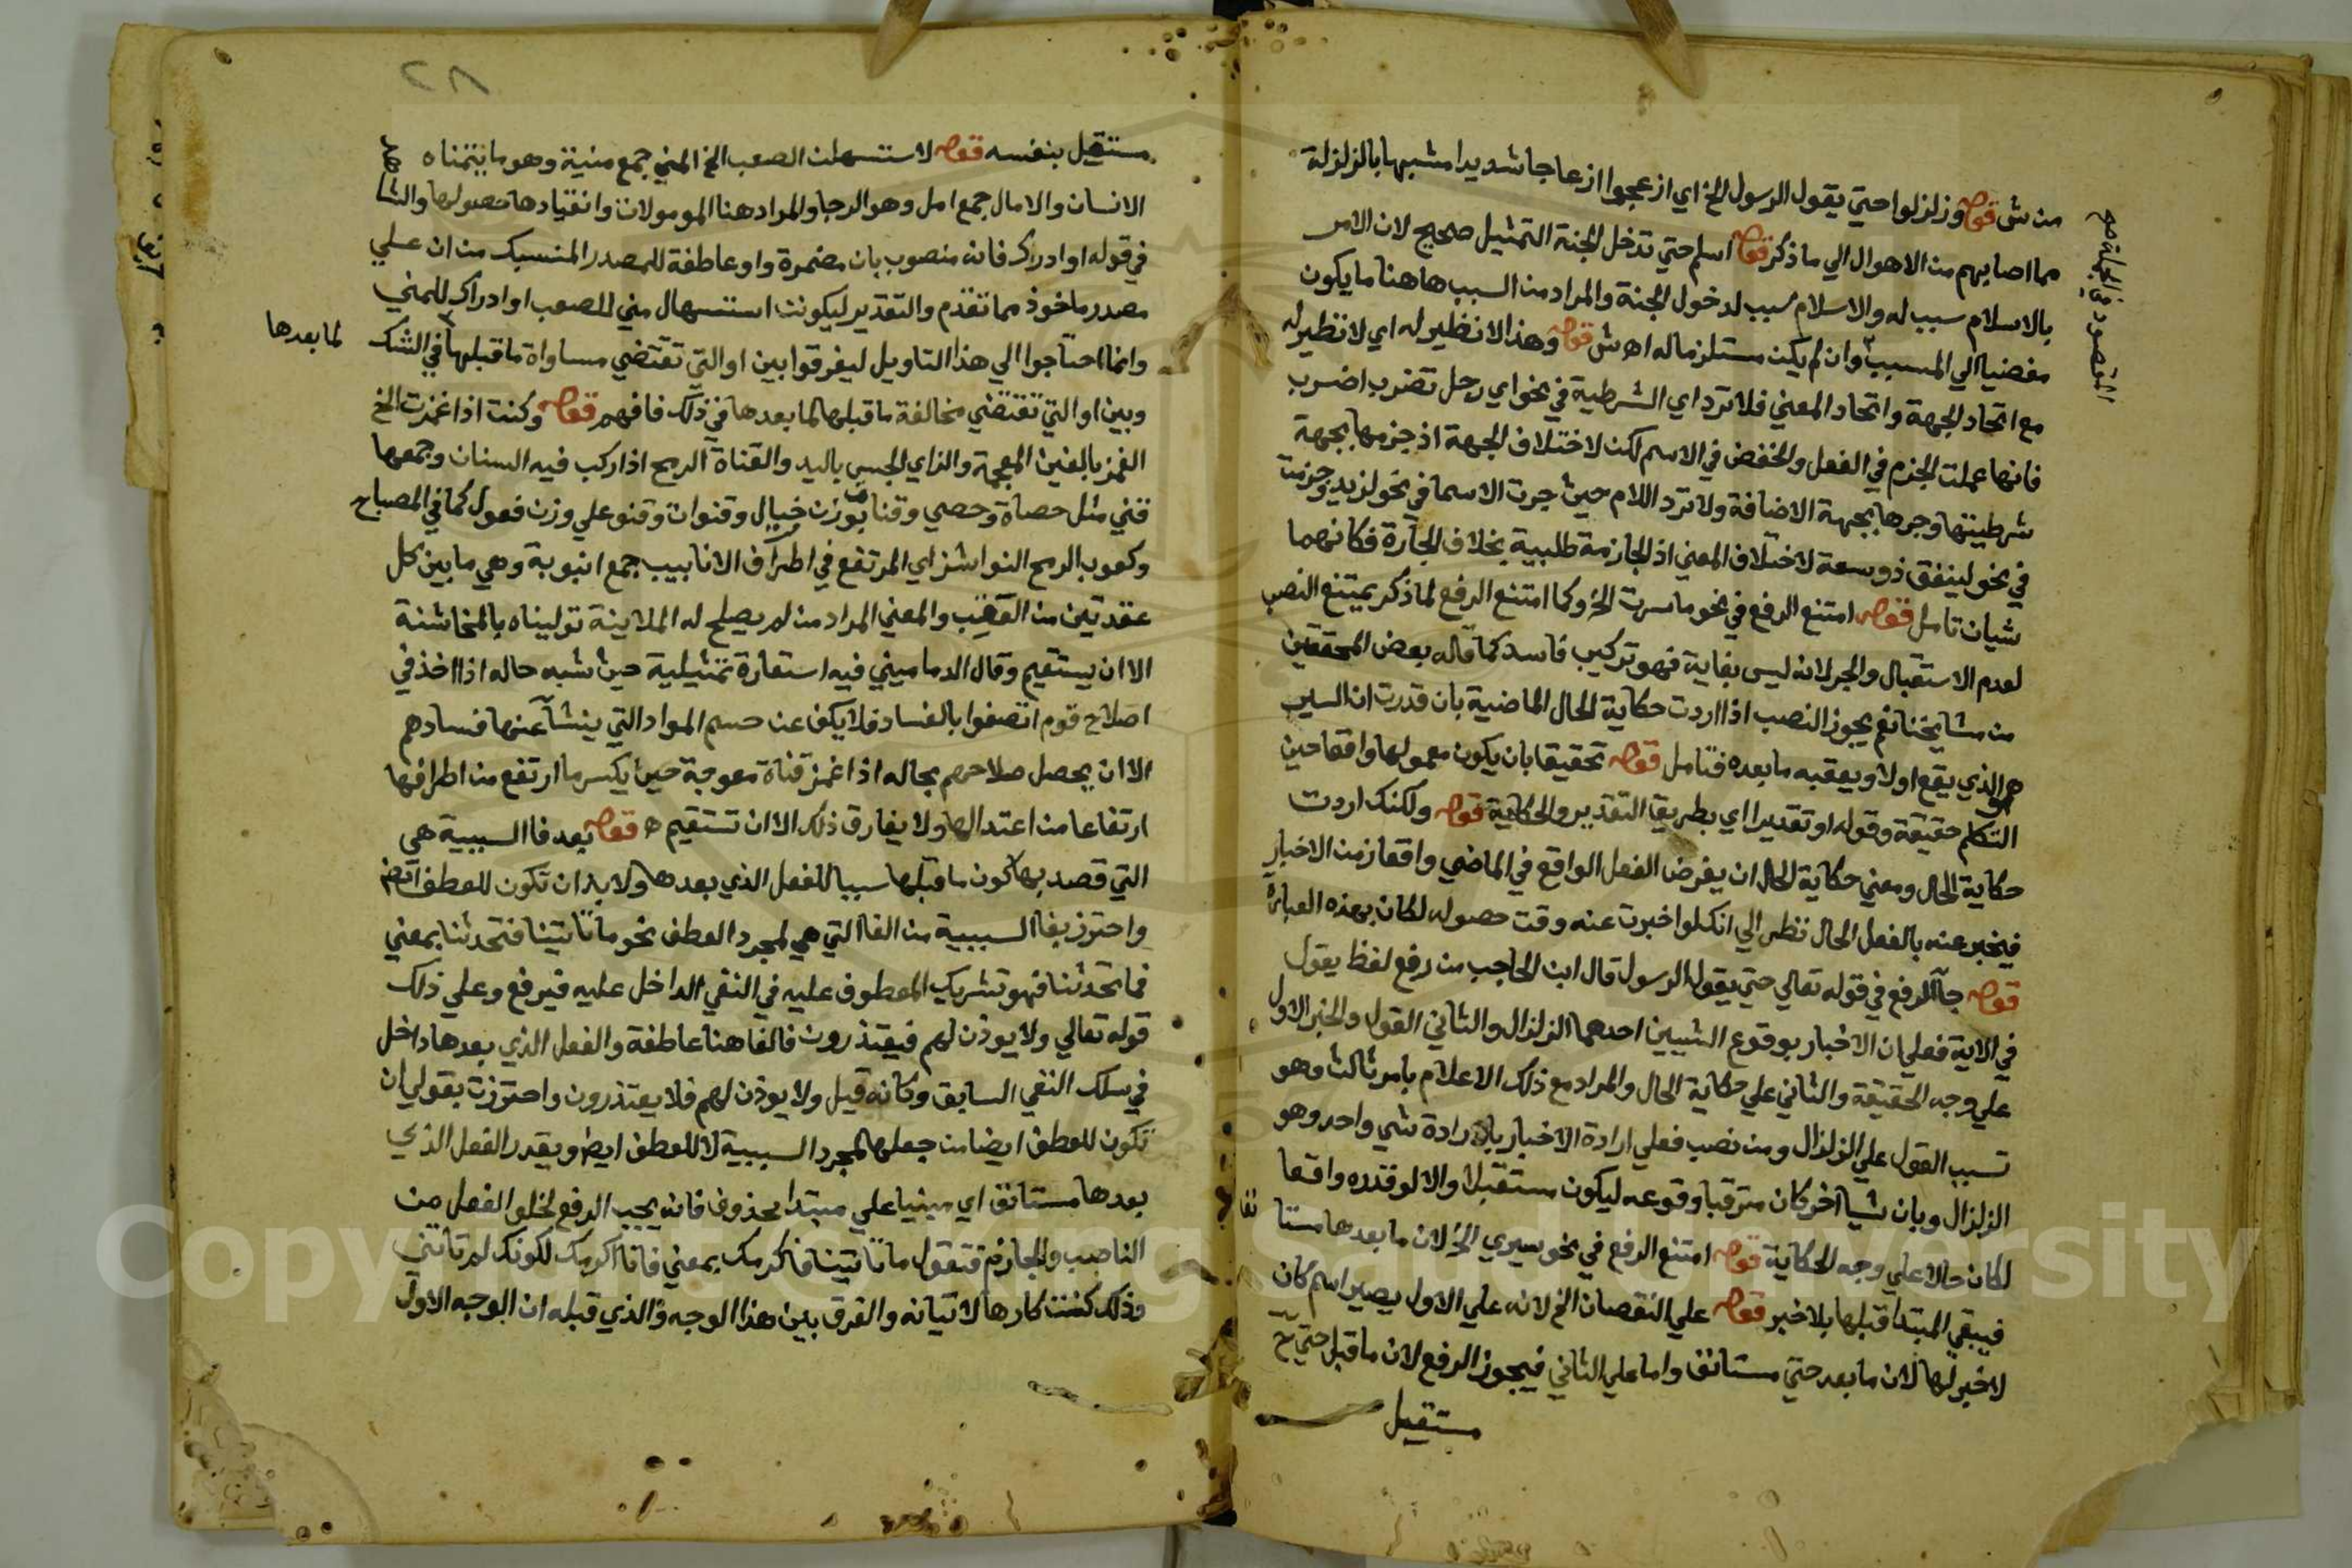 من ش قوله وزلزلوا حتي يقول الرسول الخ اي ازعجوا ازعاجا شديدا مشبها بالزلزلة
مما اصابهم من الاهوال الي ما ذكر قوله اسلم حتي تدخل الجنة التمثيل صحيح لان الامر
بالاسلام سبب له والاسلام سبب لدخول الجنة والمراد من السبب هاهنا ما يكون
مفضيا الي المسبب وان لم يكن مستلزما له اه ش قوله وهذا لا نظير له اي لا نظير له
مع اتحاد الجهة واتحاد المعني فلا ترد اي الشرطية في نحو اي رجل تضرب اضرب
فانها عملت الجزم في الفعل والخفض في الاسم لكن لاختلاف الجهة اذ جزمها بجهة
شرطيتها وجرها بجهة الاضافة ولا ترد اللام حيث جرت الاسما في نحو لزيد وجزمت
في نحو لينفق ذو سعة لاختلاف المعني اذ الجازمة طلبية بخلاف الجارة فكانهما
شيان تامل قوله امتنع الرفع في نحو ما سرت الخ وكما امتنع الرفع لما ذكر يمتنع النصب
لعدم الاستقبال والجر لانه ليس بغاية فهو تركيب فاسد كما قاله بعض المحققين
من مشايخنا نعم يجوز النصب اذا اردت حكاية الحال الماضية بان قدرت ان السير
هو الذي يقع اولا ويعقبه ما بعده فتامل قوله تحقيقا بان يكون معمولها واقعا حين
التكلم حقيقة وقوله او تقديرا اي بطريق التقدير والحكاية قوله ولكنك اردت
حكاية الحال ومعني حكاية الحال ان يفرض الفعل الواقع في الماضي واقعا زمن الاخبار
فيخبر عنه بالفعل الحال نظر الي انك لو اخبرت عنه وقت حصوله لكان بهذه العبارة
قوله جا الرفع في قوله تعالي حتي يقول الرسول قال ابن الحاجب من رفع لفظ يقول
في الاية فعلي ان الاخبار بوقوع الشيين احدهما الزلزال والثاني القول والخبر الاول
علي وجه الحقيقة والثاني علي حكاية الحال والمراد مع ذلك الاعلام بامر ثالث وهو
تسبب القول علي الزلزال ومن نصب فعلي ارادة الاخبار بارادة شي واحد وهو
الزلزال وبان شيا اخر كان مترقبا وقوعه ليكون مستقبلا والا لو قدره واقعا
لكان حالا علي وجه الحكاية قوله امتنع الرفع في نحو سيري الخ لان ما بعدها مستا
نفا
فيبقي المبتدا قبلها بلا خبر قوله علي النقصان الخ لانه علي الاول يصير اسم كان
لا خبر لها لان ما بعد حتي مستانف واما علي الثاني فيجوز الرفع لان ما قبل حتي ح
مستقيل
٢٨
مستقيل بنفسه قوله لاستسهلن الصعب الخ المني جمع منية وهو ما يتمناه
الانسان والامال جمع امل وهو الرجا والمراد هنا المومولات وانقيادها حصولها والشاهد
في قوله او ادراك فانه منصوب بان مضمرة واو عاطفة للمصدر المنسبك من ان علي
مصدر ماخوذ مما تقدم والتقدير ليكونن استسهال مني للصعب او ادراك للمني
وانما احتاجوا الي هذا التاويل ليفرقوا بين او التي تقتضي مساواة ما قبلها في الشك
لما بعدها
وبين او التي تقتضي مخالفة ما قبلها لما بعدها في ذلك فافهم قوله وكنت اذا غمزت الخ
الغمز بالغين المعجمة والزاي الجس باليد والقناة الرمح اذا ركب فيه السنان وجمعها
قني مثل حصاة وحصي وقنا بوزن خيال وقنوات وقنو علي وزن فعول كما في المصباح
وكعوب الرمح النواشز اي المرتفع في اطراف الانابيب جمع انبوبة وهي ما بين كل
عقدتين من القصب والمعني المراد من لم يصلح له الملاينة تولیناه بالمخاشنة
الا ان يستقيم وقال الدماميني فيه استعارة تمثيلية حيث شبه حاله اذا اخذ في
اصلاح قوم اتصفوا بالفساد فلا يكف عن حسم المواد التي ينشا عنها فسادهم
الا ان يحصل صلاحهم بحاله اذا غمز قناة معوجة حيث يكسر ما ارتفع من اطرافها
ارتفاعا من اعتدالها ولا يفارق ذلك الا ان تستقيم ه قوله بعد فا السببية هي
التي قصد بها كون ما قبلها سببا للفعل الذي بعدها ولا بد ان تكون للعطف ايضا
واحترز بفا السببية من الفا التي هي لمجرد العطف نحو ما تاتينا فتحدثنا بمعني
فما تحدثنا فهو تشريك المعطوف عليه في النفي الداخل عليه فيرفع وعلي ذلك
قوله تعالي ولا يوذن لهم فيعتذرون فالفا هنا عاطفة والفعل الذي بعدها داخل
في سلك النفي السابق وكانه قيل ولا يوذن لهم فلا يعتذرون واحترزت بقولي ان
تكون للعطف ايضا من جعلها لمجرد السببية لا للعطف ايض ويقدر الفعل الذي
بعدها مستانف اي مبنيا علي مبتدا محذوف فانه يجب الرفع لخلو الفعل من
الناصب والجازم فتقول ما تاتينا فاكرمك بمعني فانا اكرمك لكونك لم تاتني
وذلك كنت كارها لاتيانه والفرق بين هذا الوجه والذي قبله ان الوجه الاول